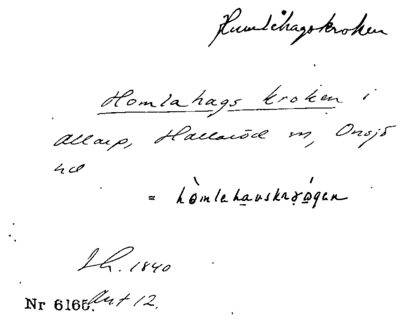 Humlehagskroken
Homlahags kroken i
Allarp, Hallaröd sn, Onsjö
hd
= hòmlahavskrógen
Lh. 1840
Nr 6165. Akt 12.